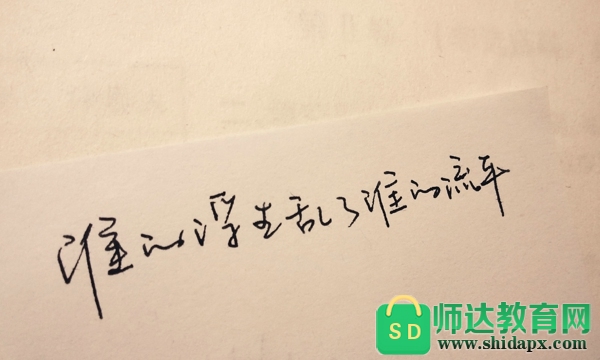 谁的浮生乱了谁的流年
SD
师达教育网
www.shidapx.com